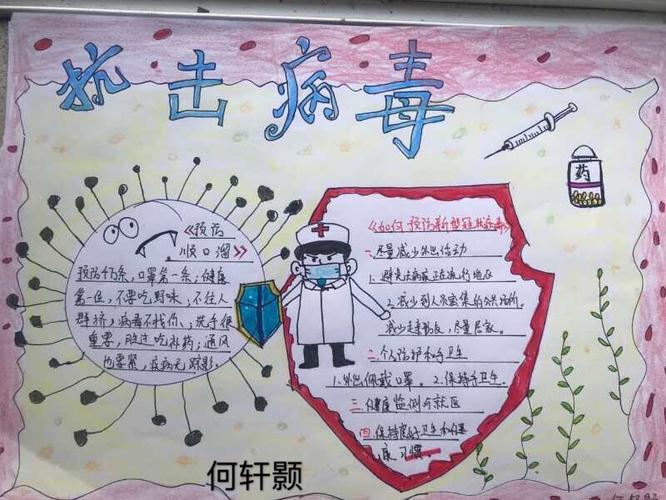 抗击病毒
药
《预防
顺口溜》
预防千万条，口罩第一条；健康
第一位，不要吃野味，不往人
群挤，病毒不找你，洗手很
重要，胜过吃补药；通风
也要紧，疫病无踪影。
《如何预防新型冠状病毒》
一、尽量减少外出活动
1.避免去疾病正在流行地区
2.减少到人员密集的公共场所。
减少走亲访友，尽量居家。
二、个人防护和手卫生
1.外出佩戴口罩。2.保持手卫生
三、健康监测与就医
四、保持良好卫生和健
康习惯
何轩颢